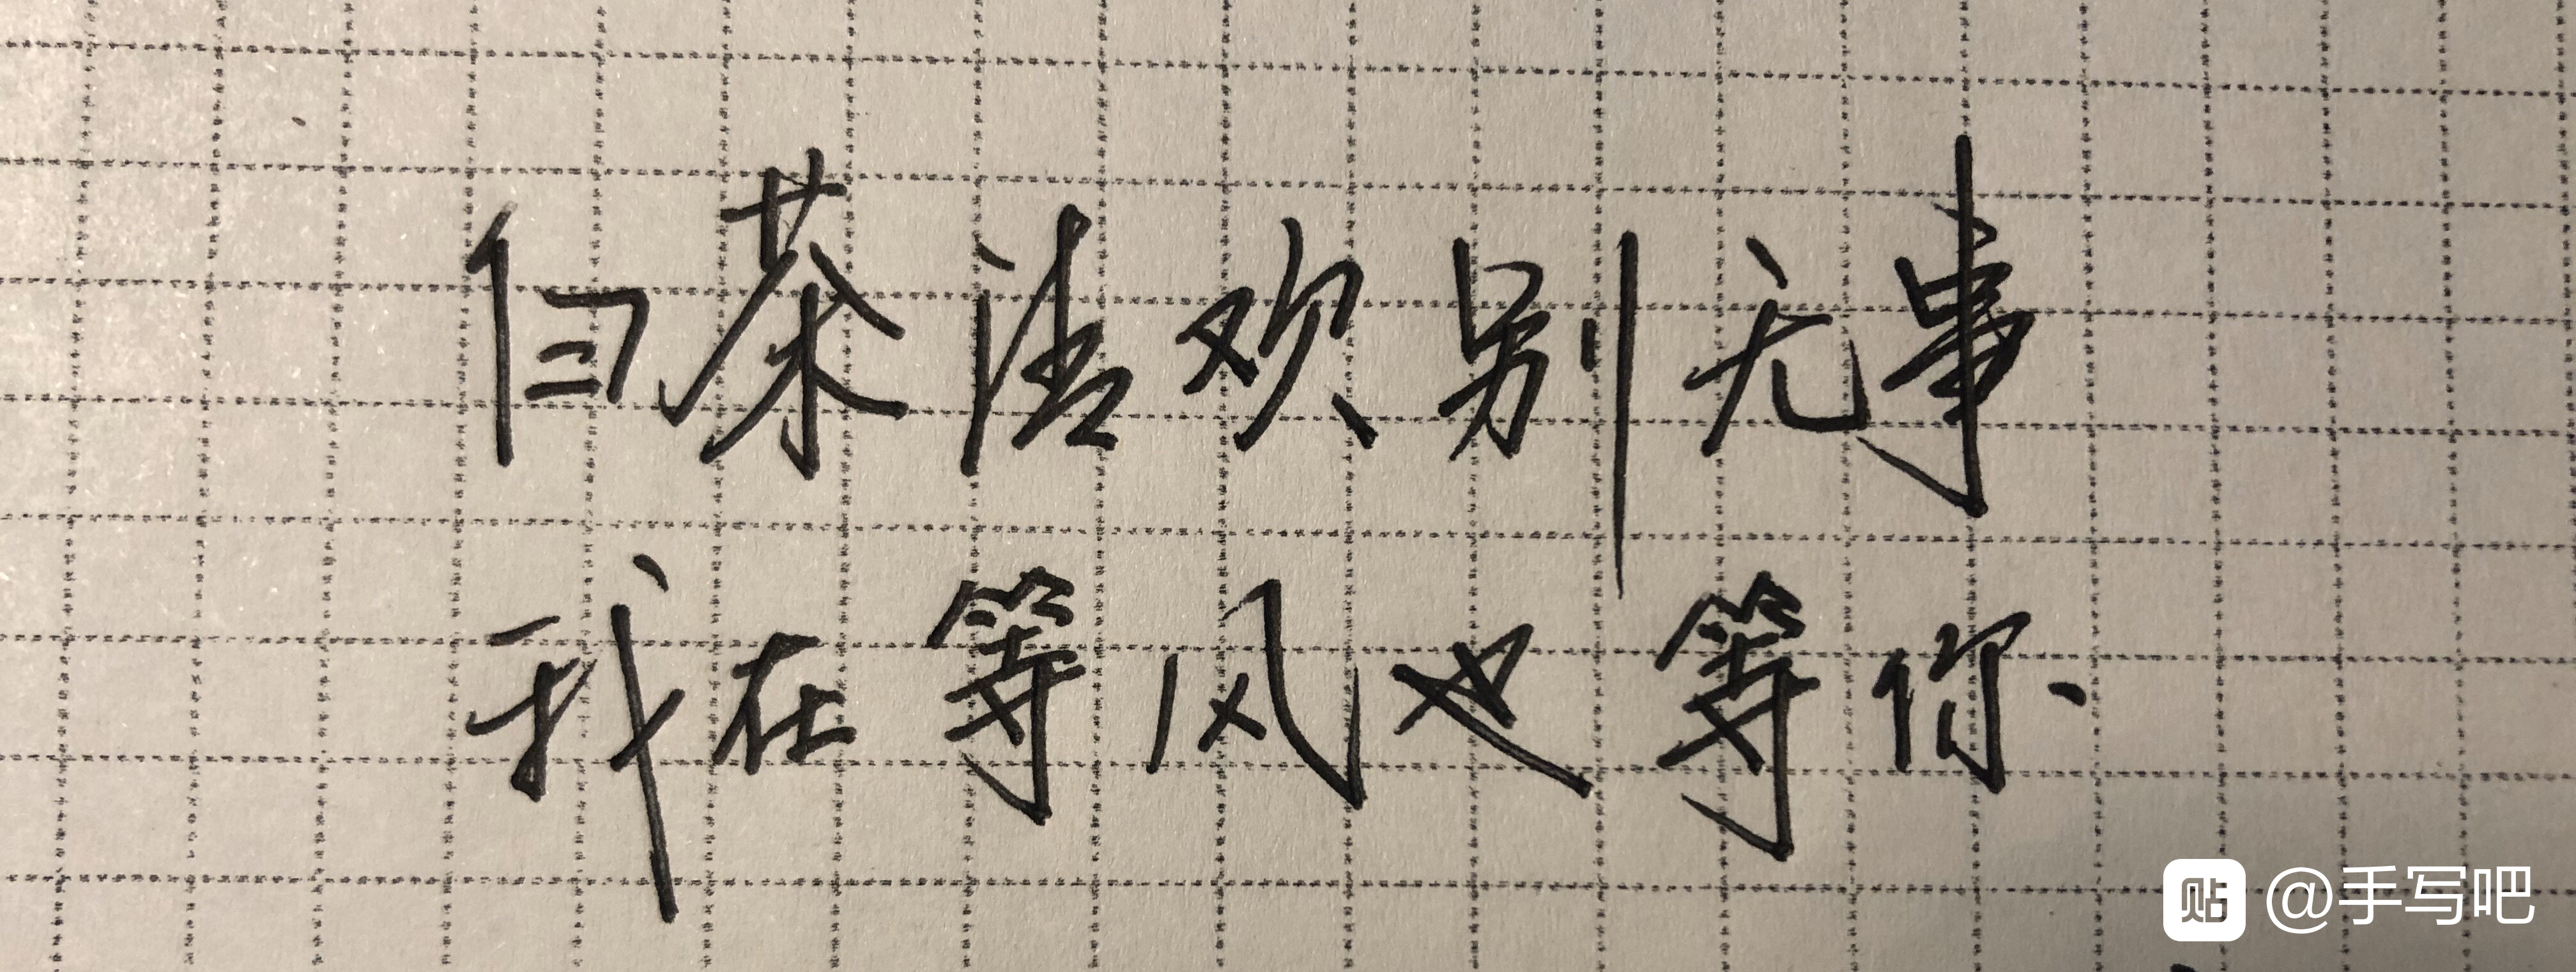 白茶清欢别无事
我在等风也等你
贴 @手写吧